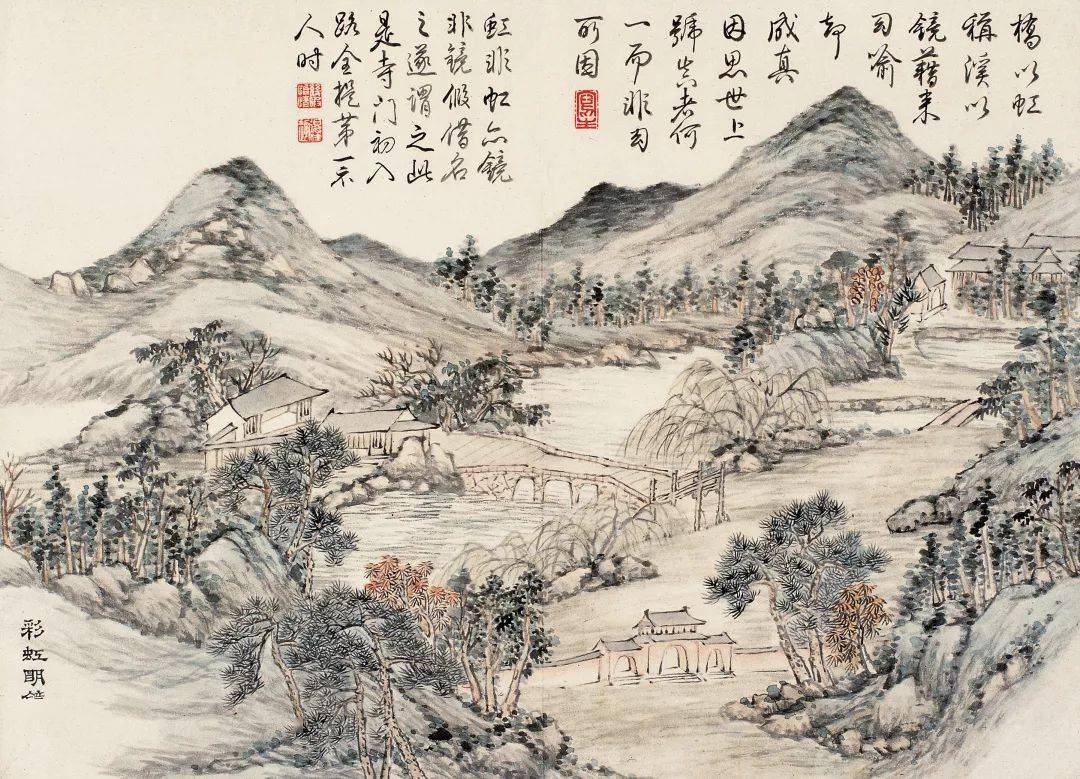 橋以虹
稱溪以
鏡藉來
幻喻
却
成真
因思世上
號實者何
一而非幻
所因
虹非虹亦鏡
非鏡假借名
之遂謂之此
是寺門初入
路全提第一示
人时
彩虹明